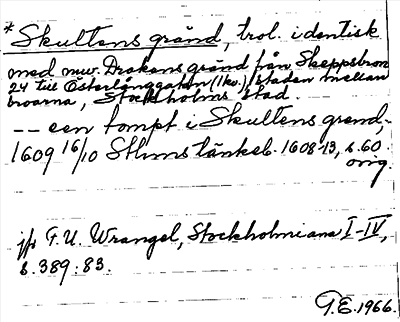 * Skultens gränd, trol. identisk
med nuv. Drakens gränd från Skeppsbron
24 till Österlånggatan (1 kv.) / staden mellan
broarna, Stockholms stad.
-- een tompt i Skultens grend,
1609 16/10 Sthms tänkeb. 1608-13, s. 60.
orig.
jfr F.U. Wrangel, Stockholmiana I-IV,
s. 389: 83.
G.E. 1966.